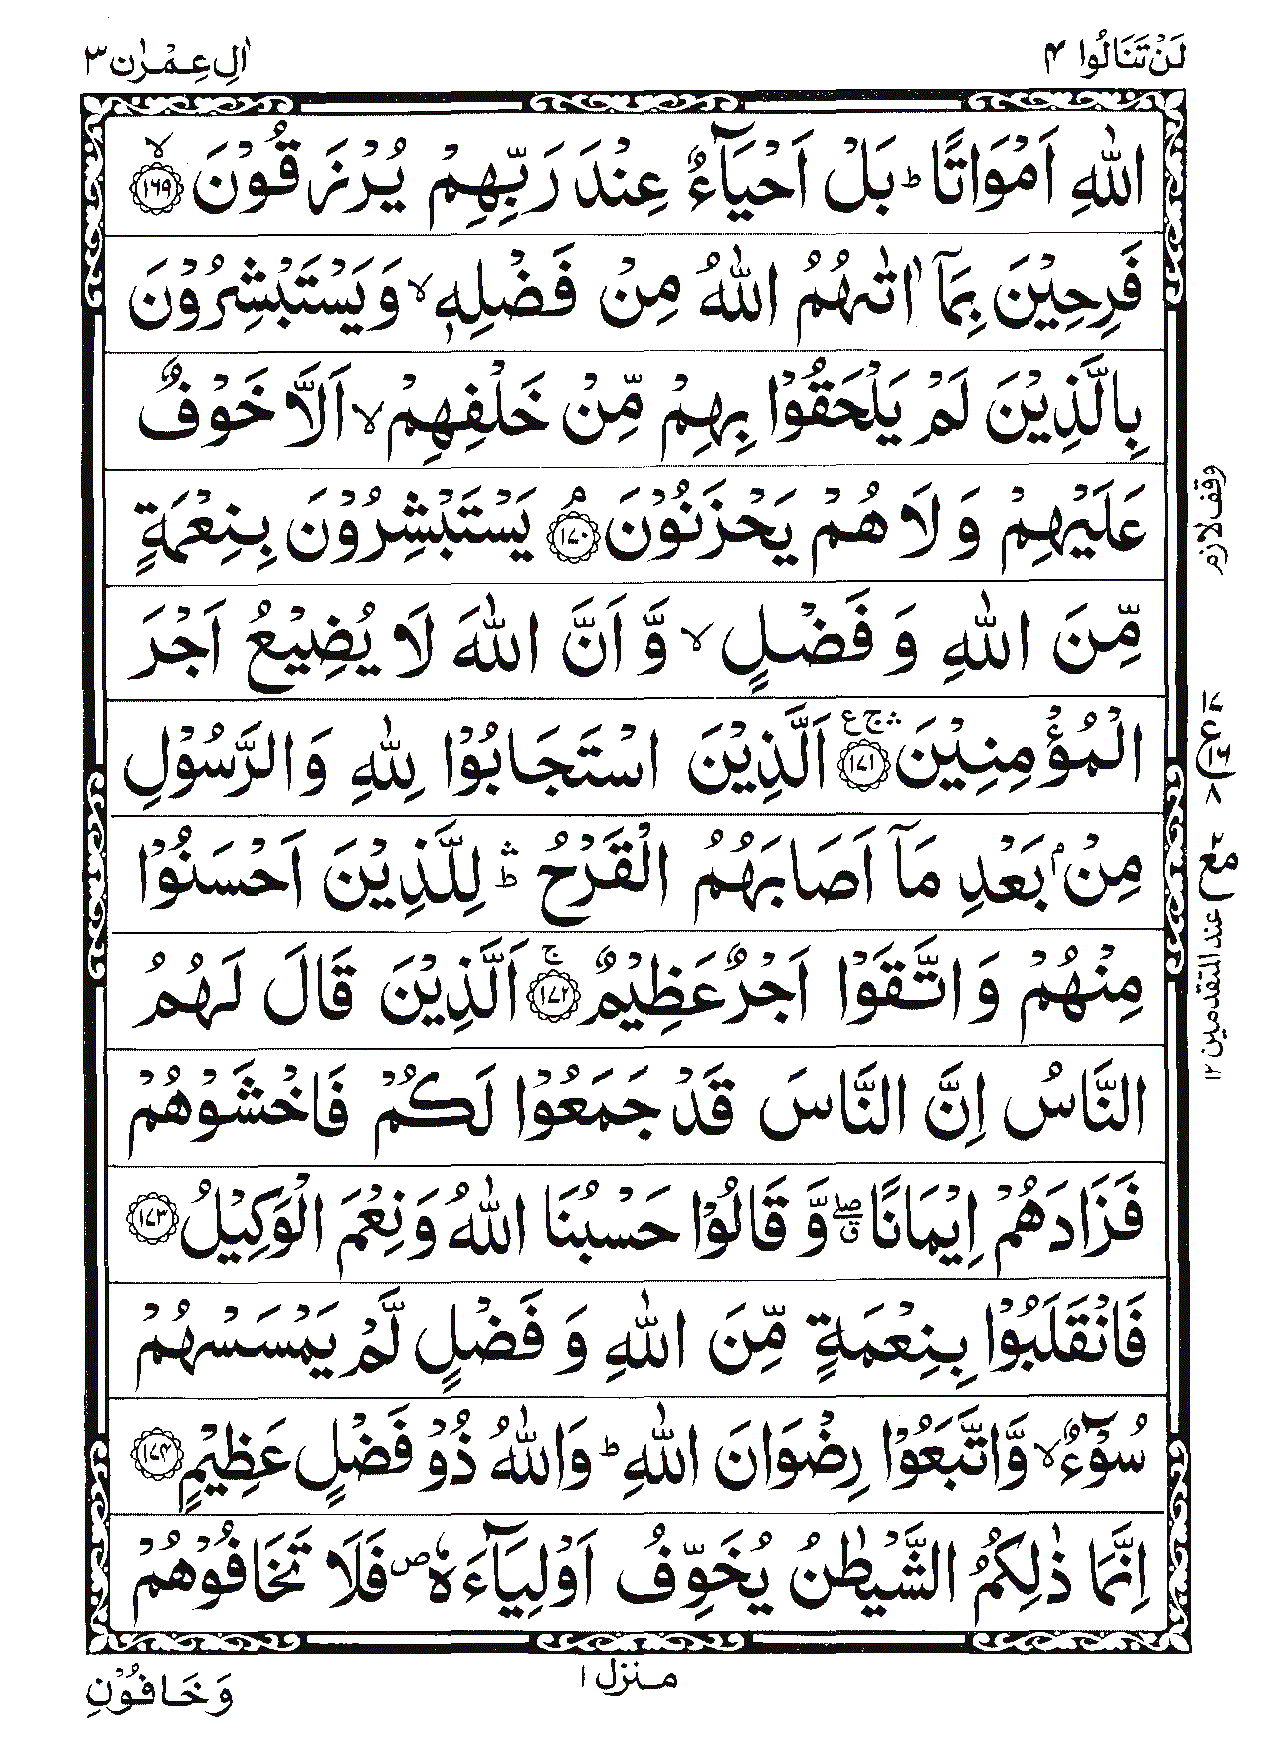 لَنْ تَنَالُوا ۴
اٰلِ عِمْرٰن ۳
اللّٰهِ اَمْوَاتًا ؕ بَلْ اَحْيَآءٌ عِنْدَ رَبِّهِمْ يُرْزَقُوْنَ ۙ﴿۱۶۹﴾
فَرِحِيْنَ بِمَاۤ اٰتٰىهُمُ اللّٰهُ مِنْ فَضْلِهٖ ۙ وَيَسْتَبْشِرُوْنَ
بِالَّذِيْنَ لَمْ يَلْحَقُوْا بِهِمْ مِّنْ خَلْفِهِمْ ۙ اَلَّا خَوْفٌ
عَلَيْهِمْ وَ لَا هُمْ يَحْزَنُوْنَ ۘ﴿۱۷۰﴾ يَسْتَبْشِرُوْنَ بِنِعْمَةٍ
مِّنَ اللّٰهِ وَ فَضْلٍ ۙ وَّ اَنَّ اللّٰهَ لَا يُضِيْعُ اَجْرَ
الْمُؤْمِنِيْنَ ۛۚ ع ﴿۱۷۱﴾ اَلَّذِيْنَ اسْتَجَابُوْا لِلّٰهِ وَالرَّسُوْلِ
مِنْۢ بَعْدِ مَاۤ اَصَابَهُمُ الْقَرْحُ ؕۛ لِلَّذِيْنَ اَحْسَنُوْا
مِنْهُمْ وَ اتَّقَوْا اَجْرٌ عَظِيْمٌ ۚ﴿۱۷۲﴾ اَلَّذِيْنَ قَالَ لَهُمُ
النَّاسُ اِنَّ النَّاسَ قَدْ جَمَعُوْا لَكُمْ فَاخْشَوْهُمْ
فَزَادَهُمْ اِيْمَانًا ۖۗ وَّ قَالُوْا حَسْبُنَا اللّٰهُ وَ نِعْمَ الْوَكِيْلُ ﴿۱۷۳﴾
فَانْقَلَبُوْا بِنِعْمَةٍ مِّنَ اللّٰهِ وَ فَضْلٍ لَّمْ يَمْسَسْهُمْ
سُوْٓءٌ ۙ وَّاتَّبَعُوْا رِضْوَانَ اللّٰهِ ؕ وَاللّٰهُ ذُوْ فَضْلٍ عَظِيْمٍ ﴿۱۷۴﴾
اِنَّمَا ذٰلِكُمُ الشَّيْطٰنُ يُخَوِّفُ اَوْلِيَآءَهٗ ۪ فَلَا تَخَافُوْهُمْ
وقف لازم
ع
۸
مع
عند المتقدمين ۱۲
منزل ۱
وَخَافُوْنِ